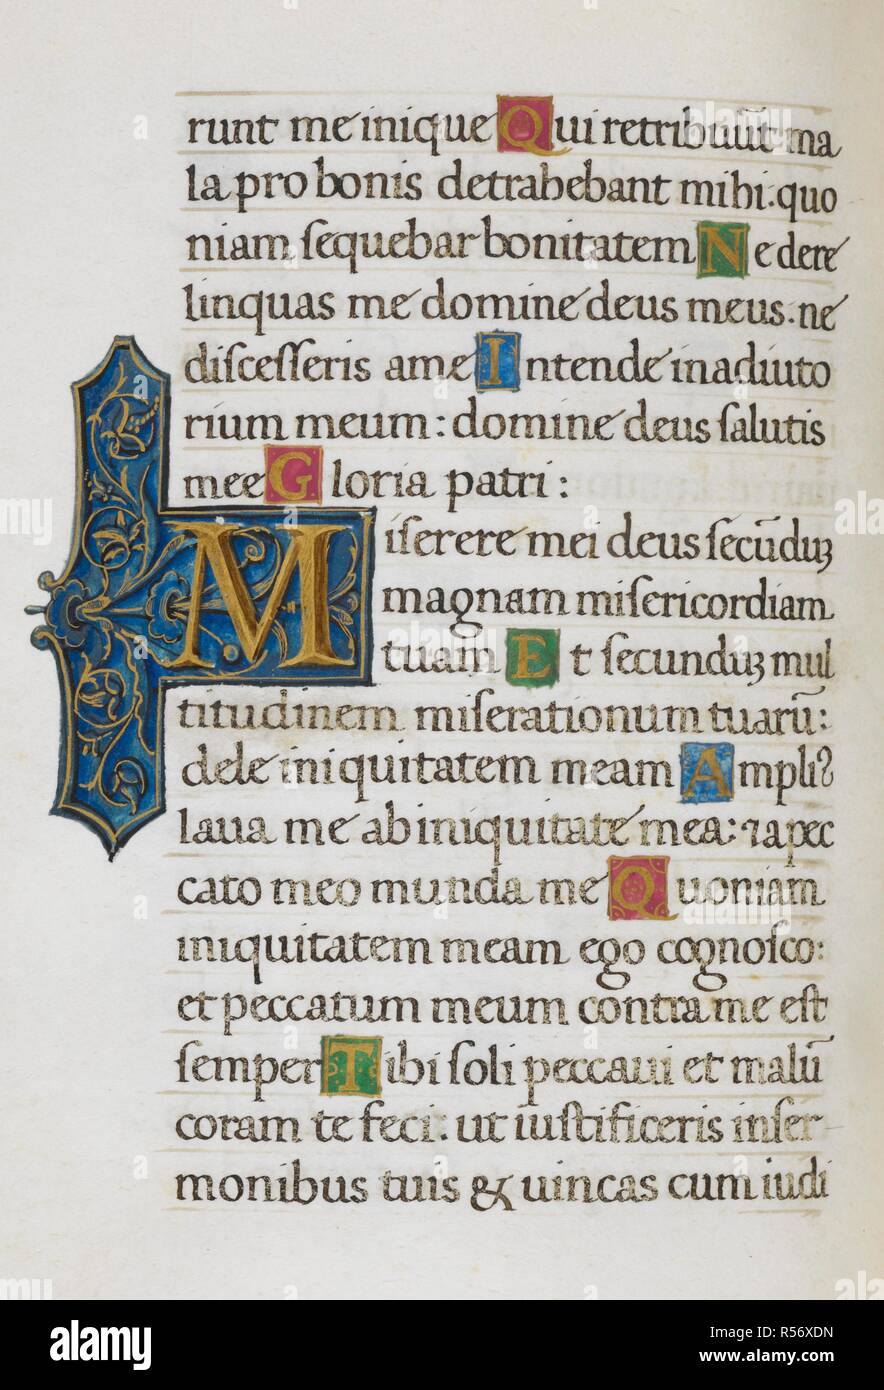 runt me inique Qui retribuūt ma
la pro bonis detrahebant mihi. quo
niam ſequebar bonitatem Ne dere
linquas me domine deus meus. ne
diſceſſeris a me Intende in adiuto
rium meum: domine deus ſalutis
mee Gloria patri:
Miſerere mei deus ſecūduꝫ
magnam miſericordiam
tuam Et ſecunduꝫ mul
titudinem miſerationum tuarū:
dele iniquitatem meam Ampliꝰ
laua me ab iniquitate mea: ⁊ a pec
cato meo munda me Quoniam
iniquitatem meam ego cognoſco:
et peccatum meum contra me eſt
ſemper Tibi ſoli peccaui et malū
coram te feci. ut iuſtificeris in ſer
monibus tuis & uincas cum iudi
alamy
Image ID: R56XDN
www.alamy.com